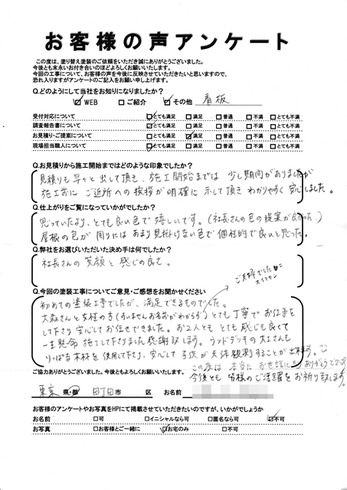 お客様の声アンケート
この度は、塗り替え塗装のご依頼をいただき誠にありがとうございました。
今後とも末永いお付き合いのほどよろしくお願いいたします。
今回の工事について、お客様の声を今後に反映させていただきたいと思いますので、
恐れ入りますがアンケートのご記入をお願い申し上げます。
Q.どのようにして当社をお知りになりましたか?
☑WEB □ご紹介 ☑その他 看板
受付対応について ☑とても満足 □満足 □普通 □不満 □とても不満
調査報告書について ☑とても満足 □満足 □普通 □不満 □とても不満
お見積り・ご提案について □とても満足 ☑満足 □普通 □不満 □とても不満
現場担当職人について ☑とても満足 □満足 □普通 □不満 □とても不満
Q.お見積りから施工開始まではどのような印象でしたか?
見積りも早々と出して頂き、施工開始までは少し期間がありましたが
施工前に ご近所への挨拶が明確に示して頂き わかりやすく 安心しました。
Q.仕上がりをご覧になっていかがでしたか?
思っていたより、とても良い色で嬉しいです。(社長さんの色の提案が良かった)
屋根の色が周りにはあまり見掛けない色で個性的で良いと思った。
Q.弊社をお選びいただいた決め手は何でしたか?
社長さんの笑顔と感じの良さ。
Q.今回の塗装工事についてご意見・ご感想をお聞かせください
初めての塗装工事でしたが、満足できるものでした。
とても丁寧でお仕事を
して下さり安心してお任せできました。お二人とも とても感じも良くて
一生懸命 施工して下さいました感謝致します。ウッドデッキの大工さんも
りっぱな木材を使用して下さり、安心して
ご協力ありがとうございました。今後ともよろしくお願いいたします。
今後とも 皆様のご活躍をお祈り致します。
東京 都・県 町田市 市 区 お名前
お客様のアンケートやお写真をHPにて掲載させていただきたいのですが、いかがでしょうか
お名前 □可 □イニシャルなら可 □匿名なら可 ☑不可
お写真 □お客様とご一緒に ☑お宅のみ □不可